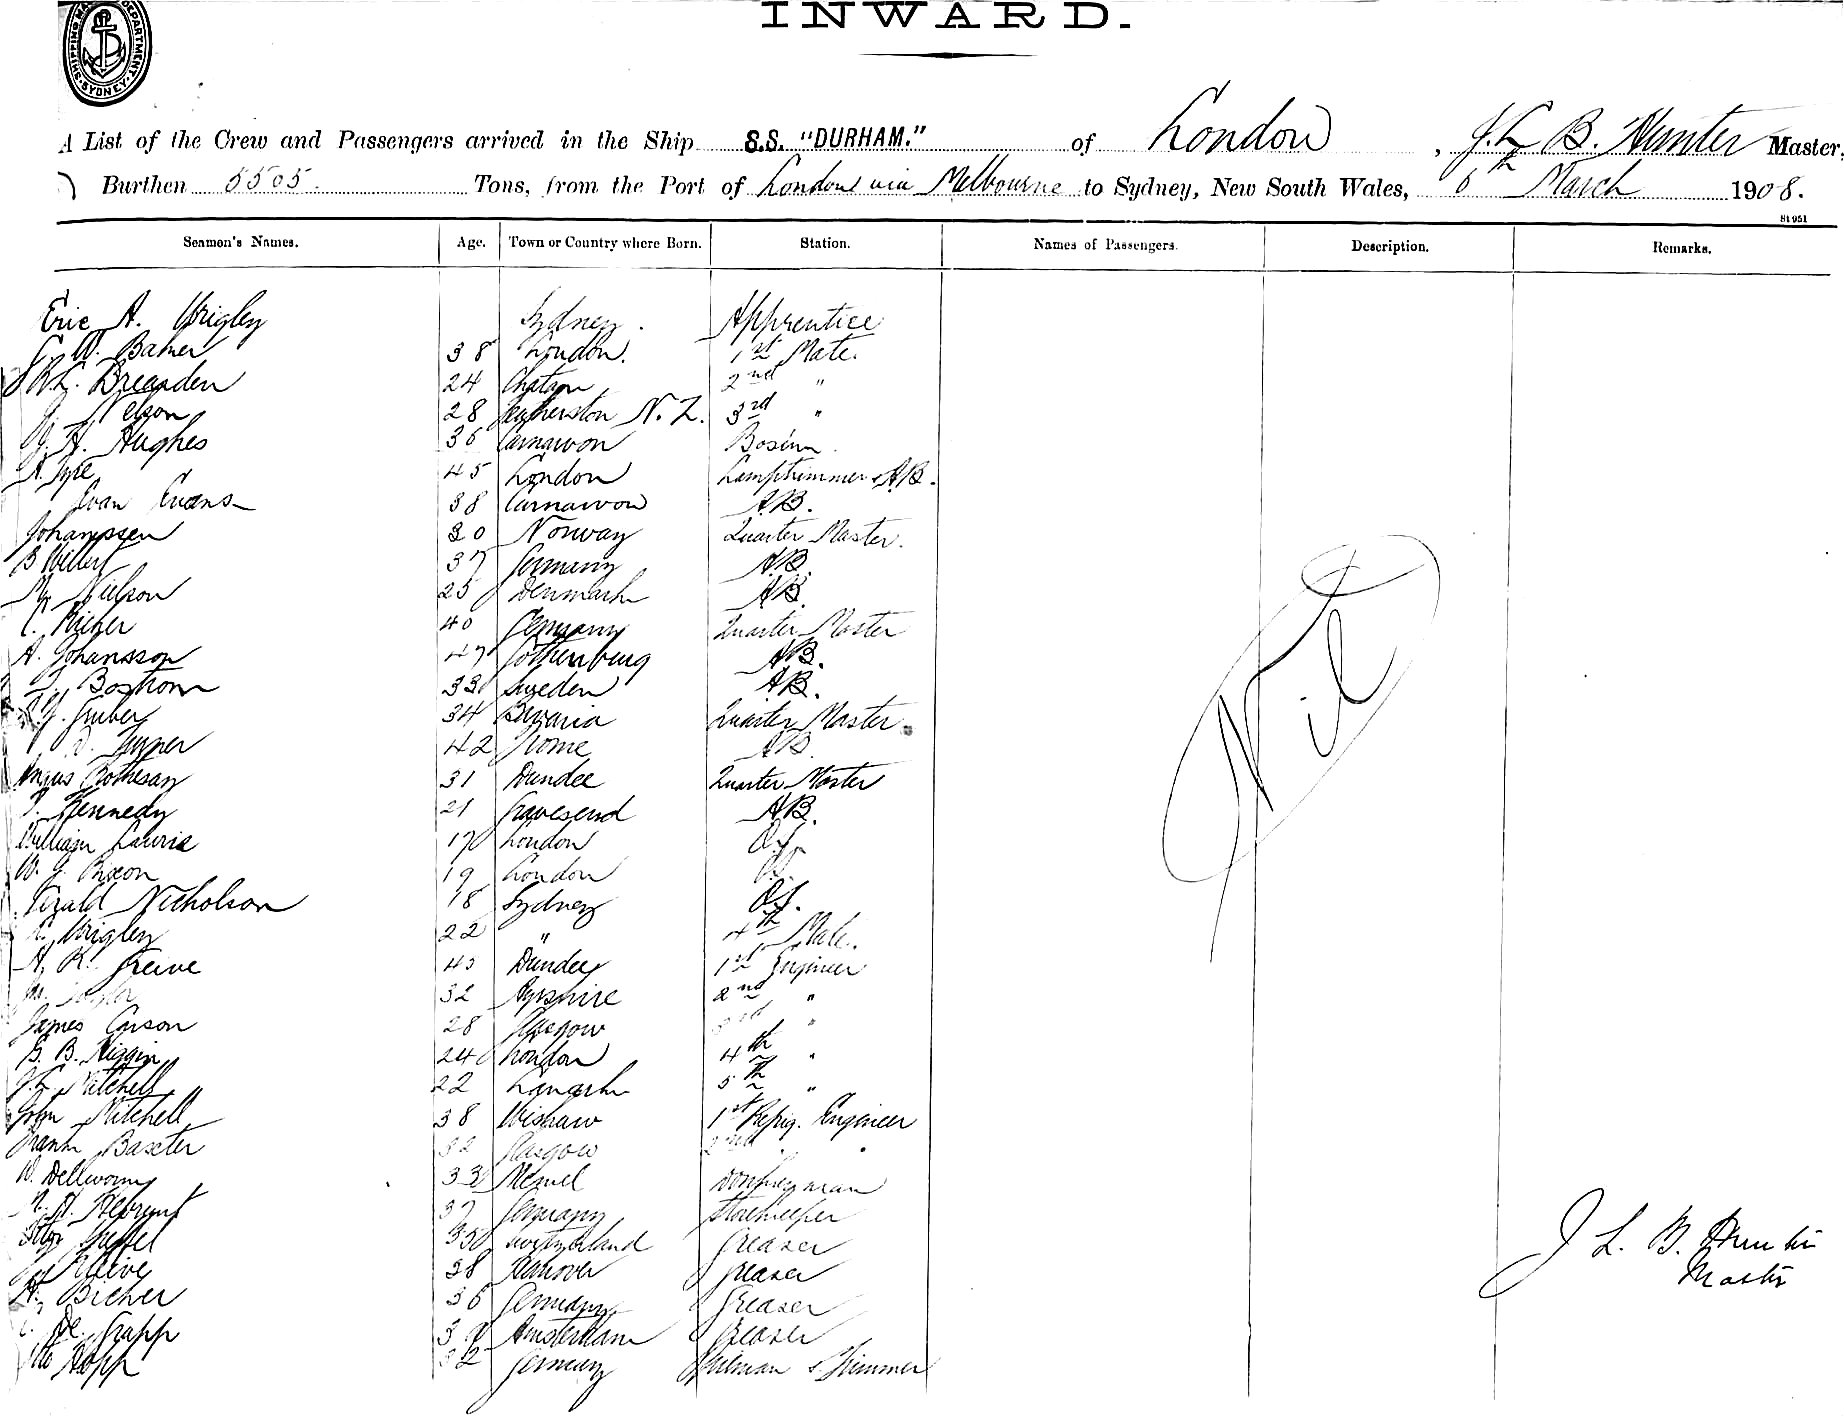 SHIPPING MASTER'S DEPARTMENT. SYDNEY
INWARD.
A List of the Crew and Passengers arrived in the Ship S.S. "DURHAM." of London, J. L. B. Hunter Master,
Burthen 5505. Tons, from the Port of London via Melbourne to Sydney, New South Wales, 6th March 1908.
81951
Seamen's Names. Age. Town or Country where Born. Station. Names of Passengers. Description. Remarks.
Eric A. Wrigley Sydney. Apprentice
W. Barker 38 London. 1st Mate.
Breaden 24 Chatam 2nd "
Nelson 28 Featherston N. Z. 3rd "
J. H. Hughes 36 Carnarvon Bosun
A. 45 London Lamptrimmer & A.B.
Evan Evans 38 Carnarvon A.B.
Johanssen 30 Norway Quarter Master.
B 37 Germany A.B.
Nielson 25 Denmark A.B.
C. 40 Germany Quarter Master
A. Johansson 47 Gothenburg A.B.
Bostrom 33 Sweden A.B.
Gruber 34 Bavaria Quarter Master
42 Rome A.B.
Angus 31 Dundee Quarter Master
Kennedy 21 Gravesend A.B.
William Lawrie 17 London O.S.
W. G. 19 London
Gerald Nicholson 18 Sydney O.S.
Wrigley 22 " 4th Mate.
A. R. Greive 43 Dundee 1st Engineer
Taylor 32 Ayrshire 2nd "
James Carson 28 Glasgow 3rd "
B. Higgin 24 London 4th "
J. L. Mitchell 22 Lanark 5th "
John Mitchell 38 Wishaw 1st Refrig. Engineer
Frank Baxter 32 Glasgow 2nd " "
W. 33 Memel Donkeyman
37 Germany Storekeeper
35 Switzerland Greaser
38 Hanover Greaser
H. 36 Germany Greaser
De Amsterdam Greaser
32 Germany Fireman & Trimmer
Nil
J. L. B. Hunter
Master